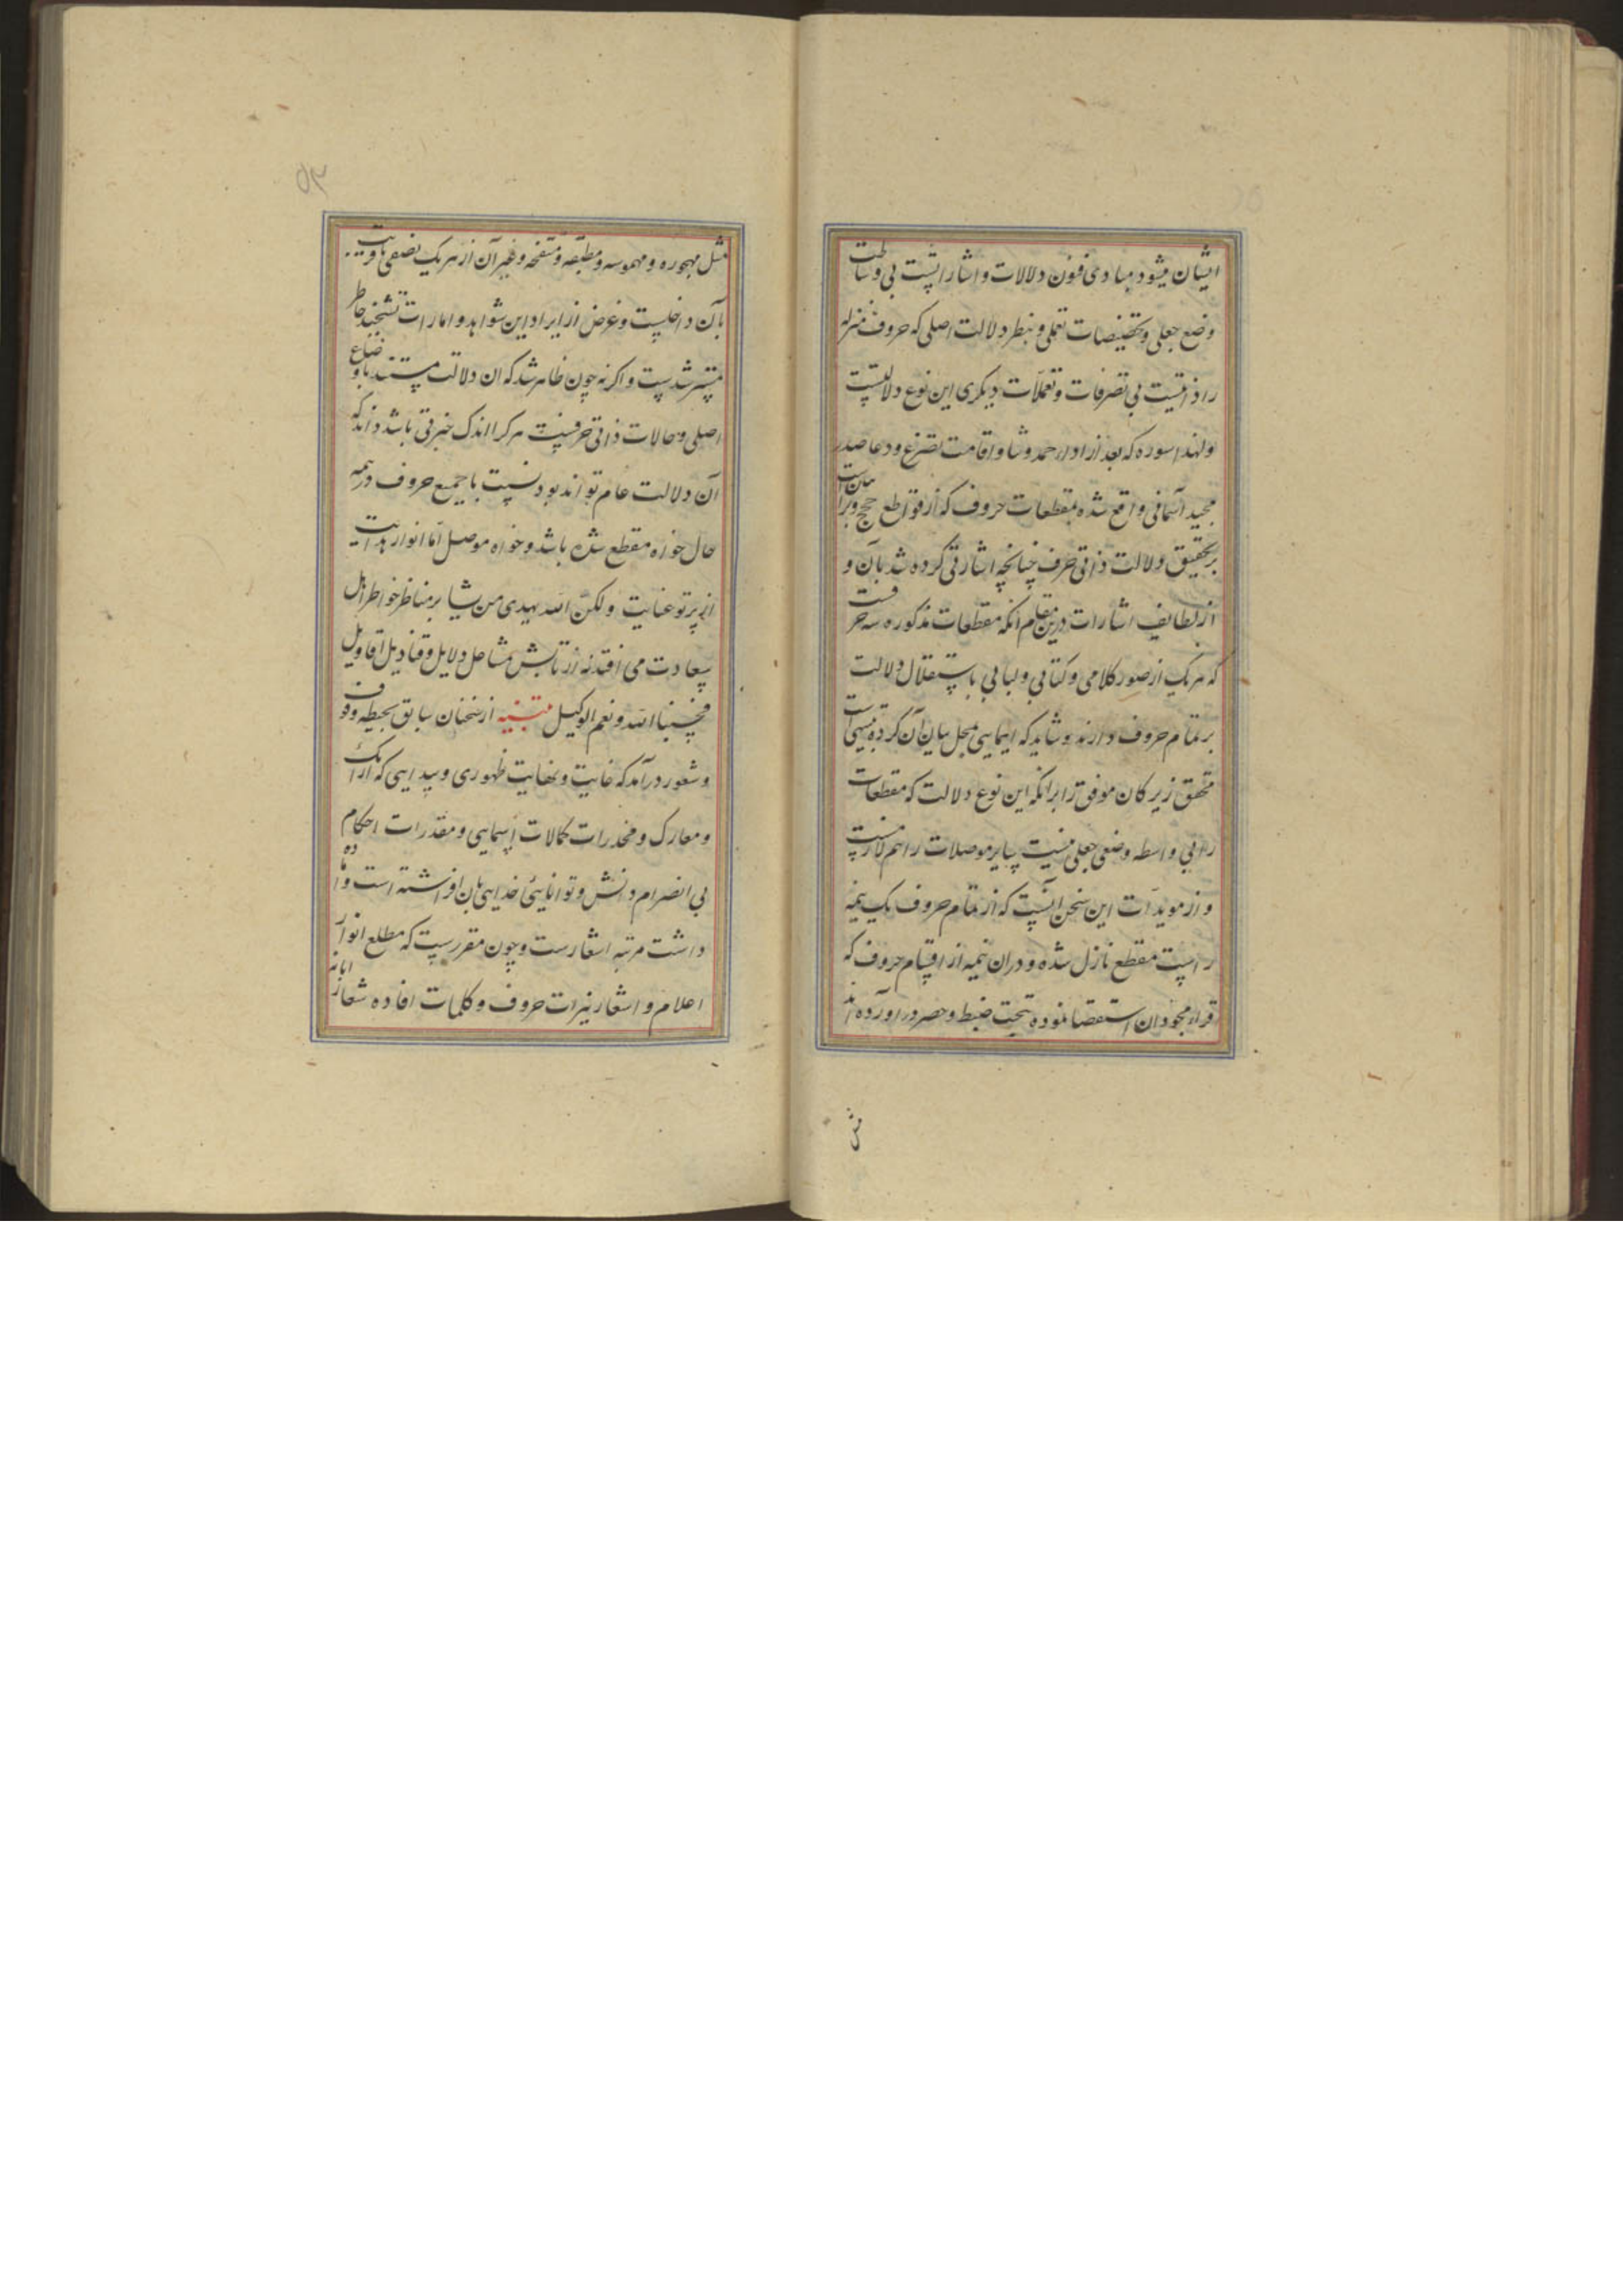 ایشان میشود مبادی فنون دلالات و اشاراتست بی وساطت
وضع جعلی و تخصیصات تعملی و بنظر دلالت اصلی که حروف منزله
را ذاتیست بی تصرفات و تعملات دیگری این نوع دلالتست
و لهذا سوره که بعد از اداء حمد و ثنا و اقامت تضرع و دعا صدر
مجید آسمانی واقع شده بمقطعات حروف که از قواطع حجج و براهین است
بر تحقیق دلالت ذاتی حرف چنانچه اشارتی کرده شد بآن و
از لطایف اشارات درین مقام آنکه مقطعات مذکوره سه حرفست
که هر یک از صور کلامی و کتابی و لبابی باستقلال دلالت
بر تمام حروف دارند و شاید که ایمایی مجمل بیان آن کرده
متحقق زیرکان موفق را برآنکه این نوع دلالت که مقطعات
را بی واسطه وضعی جعلی سایر موصلات را هم لازمست
و از مویدات این سخن آنست که از تمام حروف یک نیمه
راست مقطع نازل شده و در ان نیمه از اقسام حروف که
قراء مجودان استقصا نموده تحت ضبط و حصر در اورده اند
مثل
٥٣
مثل مجهوره و مهموسه و مطبقه و منفتحه و غیر آن از هر یک نصفی
بآن داخلیست و غرض از ایراد این شواهد و امارات تشحیذ خاطر
مسترشدست و اکرنه چون ظاهر شد که ان دلالت مستند باوضاع
اصلی و حالات ذاتی حرفیست هر کرا اندک خبرتی باشد داند که
آن دلالت عام تواند بود نسبت با جمیع حروف در همه
حال خواه مقطع شده باشد و خواه موصل اما انوار هدایت
از پرتو عنایت ولکن الله یهدی من یشا بر مناظر خواطر اهل
سعادت می افتد نه از تابش مشاعل دلایل و قنادیل اقاویل
فحسبنا الله و نعم الوکیل تنبیه از سخنان سابق بحیطه وقوف
و شعور درآمد که غایت و نهایت ظهوری و پیدایی که ارایک
و معارک و مخدرات کمالات اسمایی و مقدرات احکام
بی انصرام دانش و توانایی خدایی بان افراشته است و اماده
داشت مرتبه اشعارست و چون مقررست که مطلع انوار
اعلام و اشعار نیرات حروف و کلمات افاده شعار ابانه